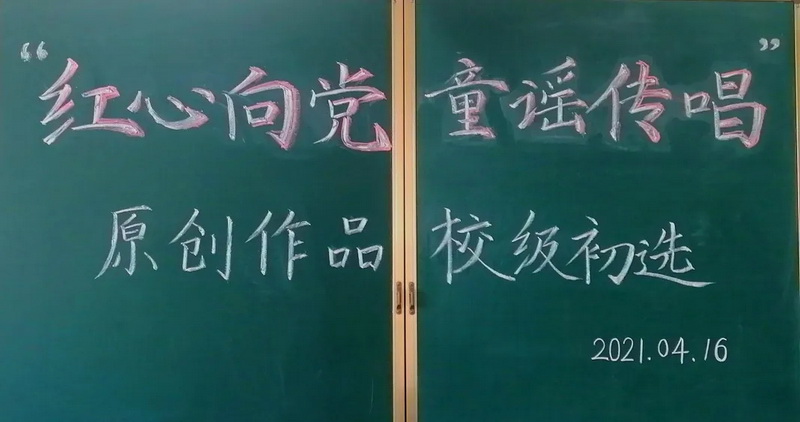 “红心向党 童谣传唱”
原创作品 校级初选
2021.04.16